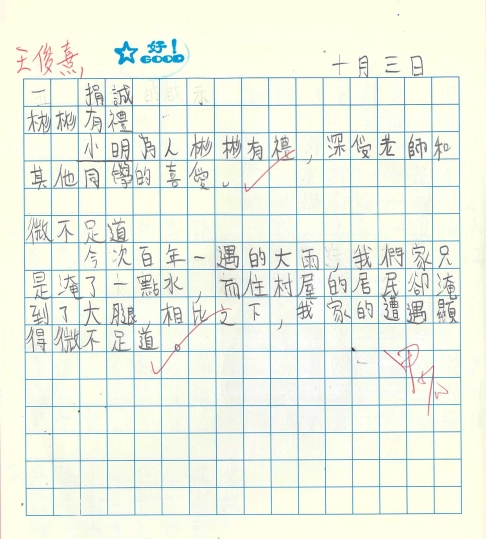 王俊熹
好!
GOOD
十月三日
二 捐誠
彬彬有禮
小明為人彬彬有禮，深受老師和
其他同學的喜愛。
微不足道
今次百年一遇的大雨，我們家只
是淹了一點水，而住村屋的居民卻淹
到了大腿，相比之下，我家的遭遇顯
得微不足道。
甲